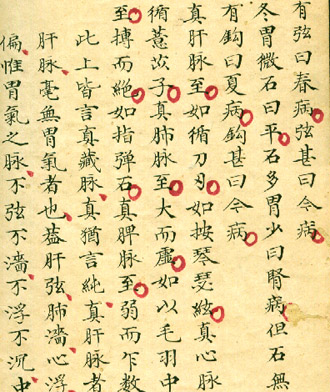 有弦曰春病弦甚曰今病
冬胃微石曰平石多胃少曰腎病但石無
有鈎曰夏病鈎甚曰今病
真肝脈至如循刀刃如按琴瑟絃真心脈
循薏苡子真肺脈至大而虛如以毛羽中
至搏而絕如指彈石真脾脈至弱而乍數
此上皆言真藏脈真猶言純真肝脈者
肝脈毫無胃氣者也蓋肝弦肺濇心浮
偏惟胃氣之脈不弦不濇不浮不沉中